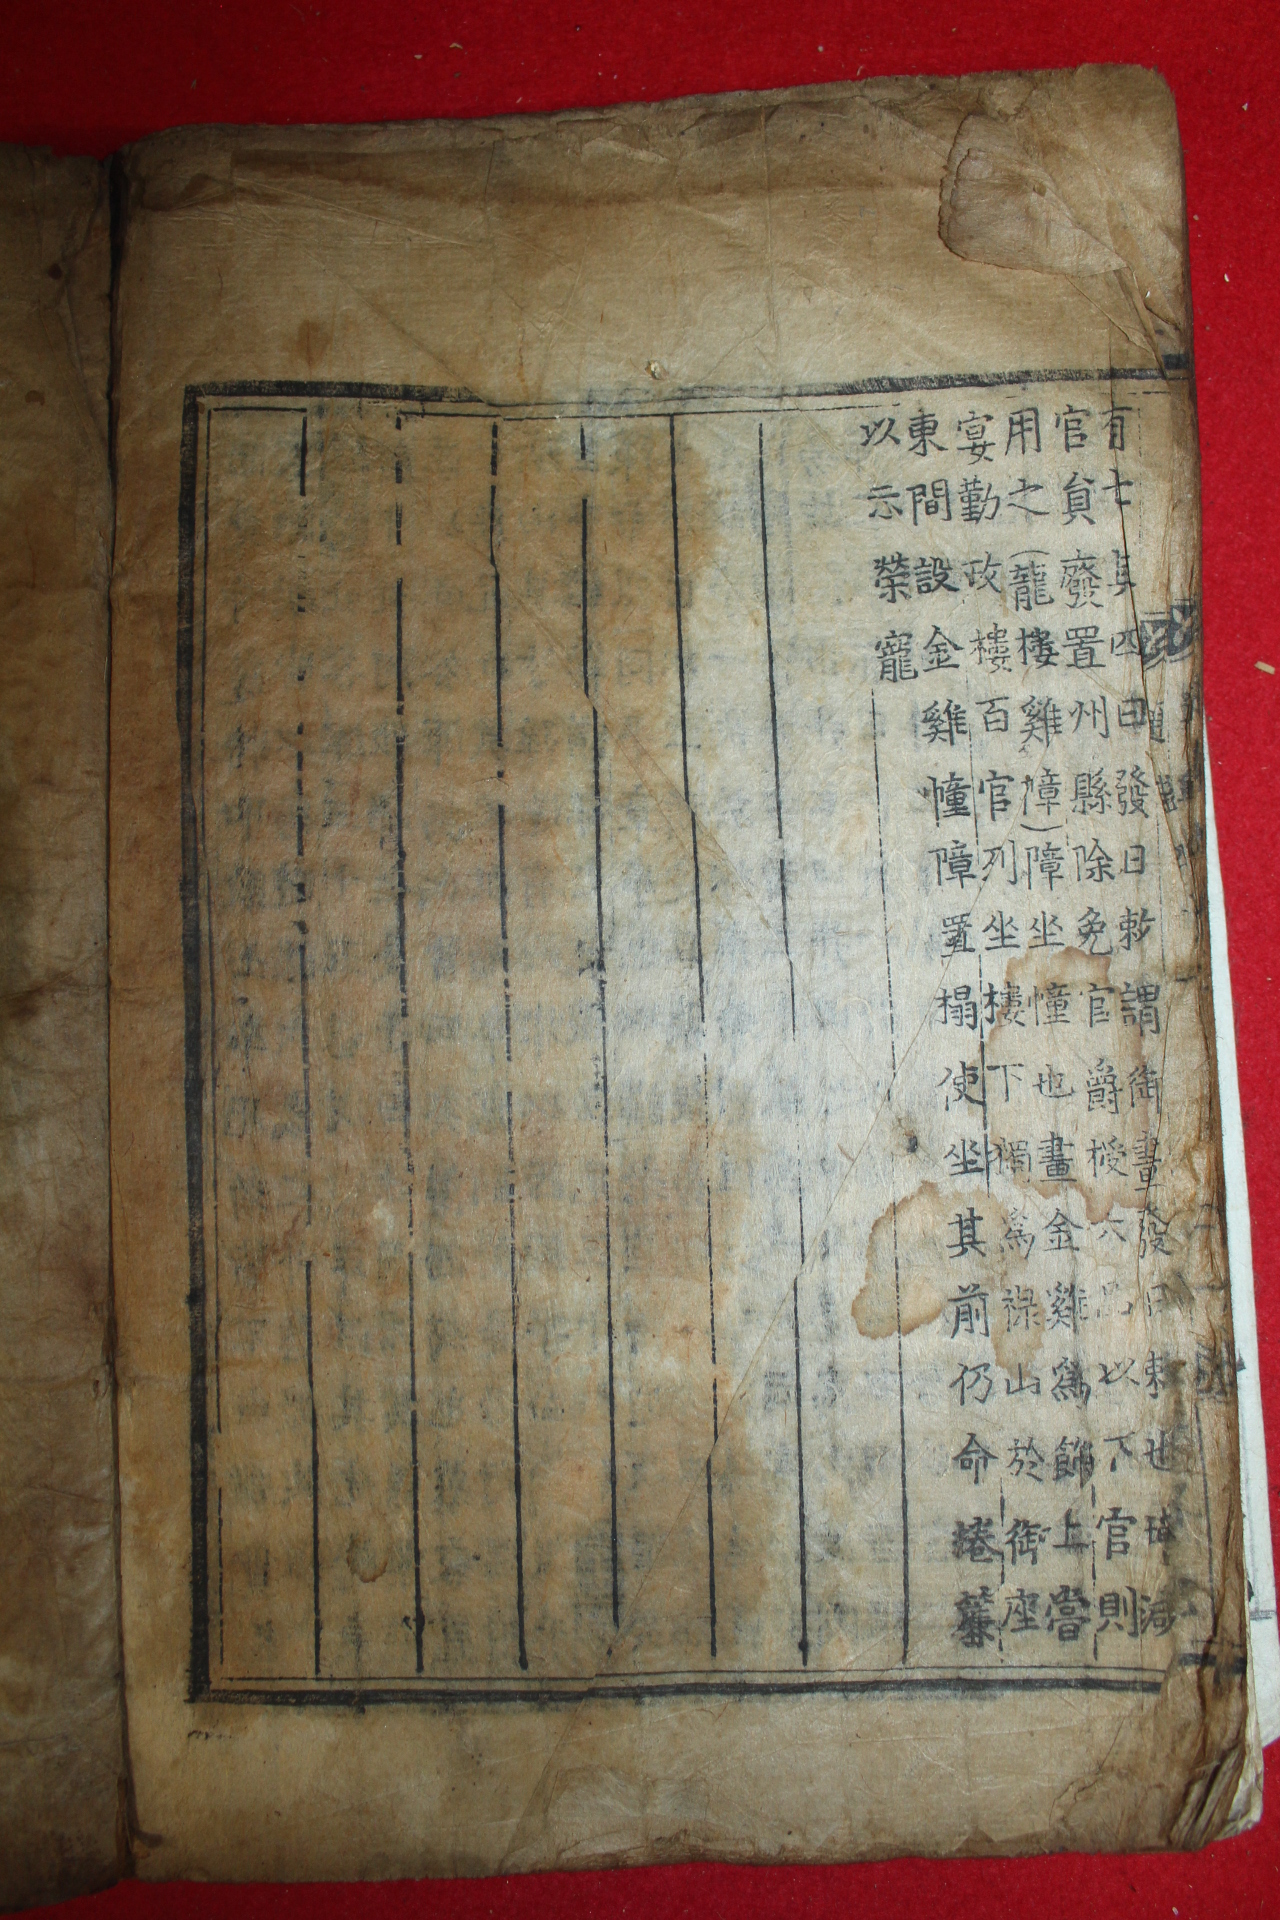 有七𠀋四曰發日敕謂御畫發日敕也增減
官貟廢置州縣除免官爵授六品以下官則
用之(龍樓雞幛)障坐幢也畫金雞爲飾上嘗
宴勤政樓百官列坐樓下獨爲禄山於御座
東間設金雞幢障置榻使坐其前仍命捲簾
以示榮寵